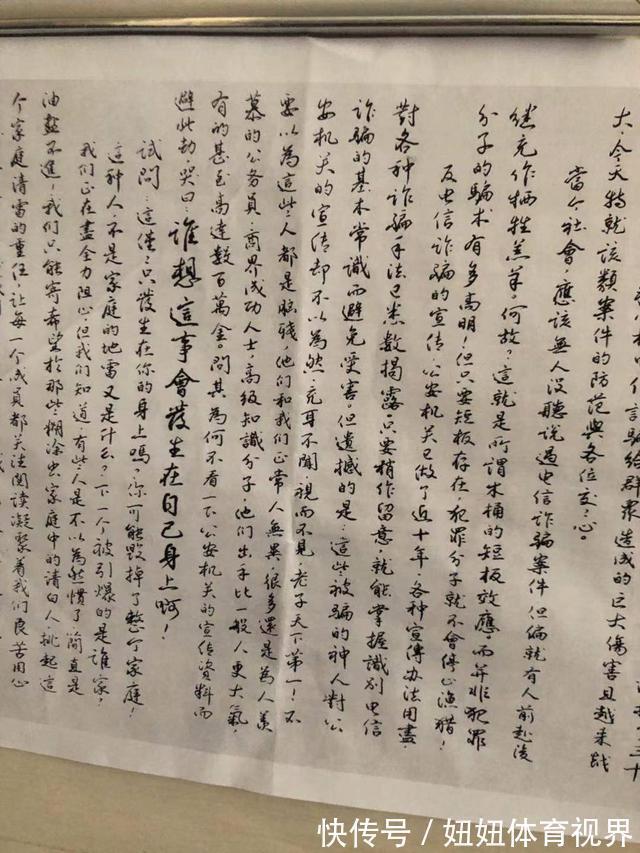 群眾造成的巨大傷害且越來越
大，今天特就该類案件的防范與各位交交心。
當今社會，應该無人没聽说過电信诈骗案件，但偏就有人前赴後
继充作牺牲羔羊。何故？這就是所谓木桶的短板效應而并非犯罪
分子的骗术有多高明！但只要短板存在，犯罪分子就不會停止渔猎！
反电信诈骗的宣传，公安机关已做了近十年，各种宣傳办法用盡，
對各种诈骗手法已悉數揭露。只要稍作留意，就能掌握識别电信
诈骗的基本常識而避免受害。但遗撼的是：這些被骗的神人對公
安机关的宣传却不以為然，充耳不聞，視而不見，老子天下第一！不
要以為這些人都是脑残，他们和我们正常人無異，很多還是為人羡
慕的公务員、商界成功人士，高级知識分子，他们出手比一般人更大氣，
有的甚至高達數百萬金。問其為何不看一下公安机关的宣传資料而
避此劫，哭曰：誰想這事會發生在自己身上啊！
試問：這僅僅只發生在你的身上嗎？你可能毁掉了整个家庭！
這种人，不是家庭的地雷又是什么？下一个被引爆的是誰家！
我们正在盡全力阻止，但我们知道有些人是不以為然惯了，简直是
油盐不進！我们只能寄希望於那些糊涂虫家庭中的清白人，挑起這
个家庭清雷的重任，让每一个成員都关注阅读凝聚着我们良苦用心
快传号／妞妞体育视界